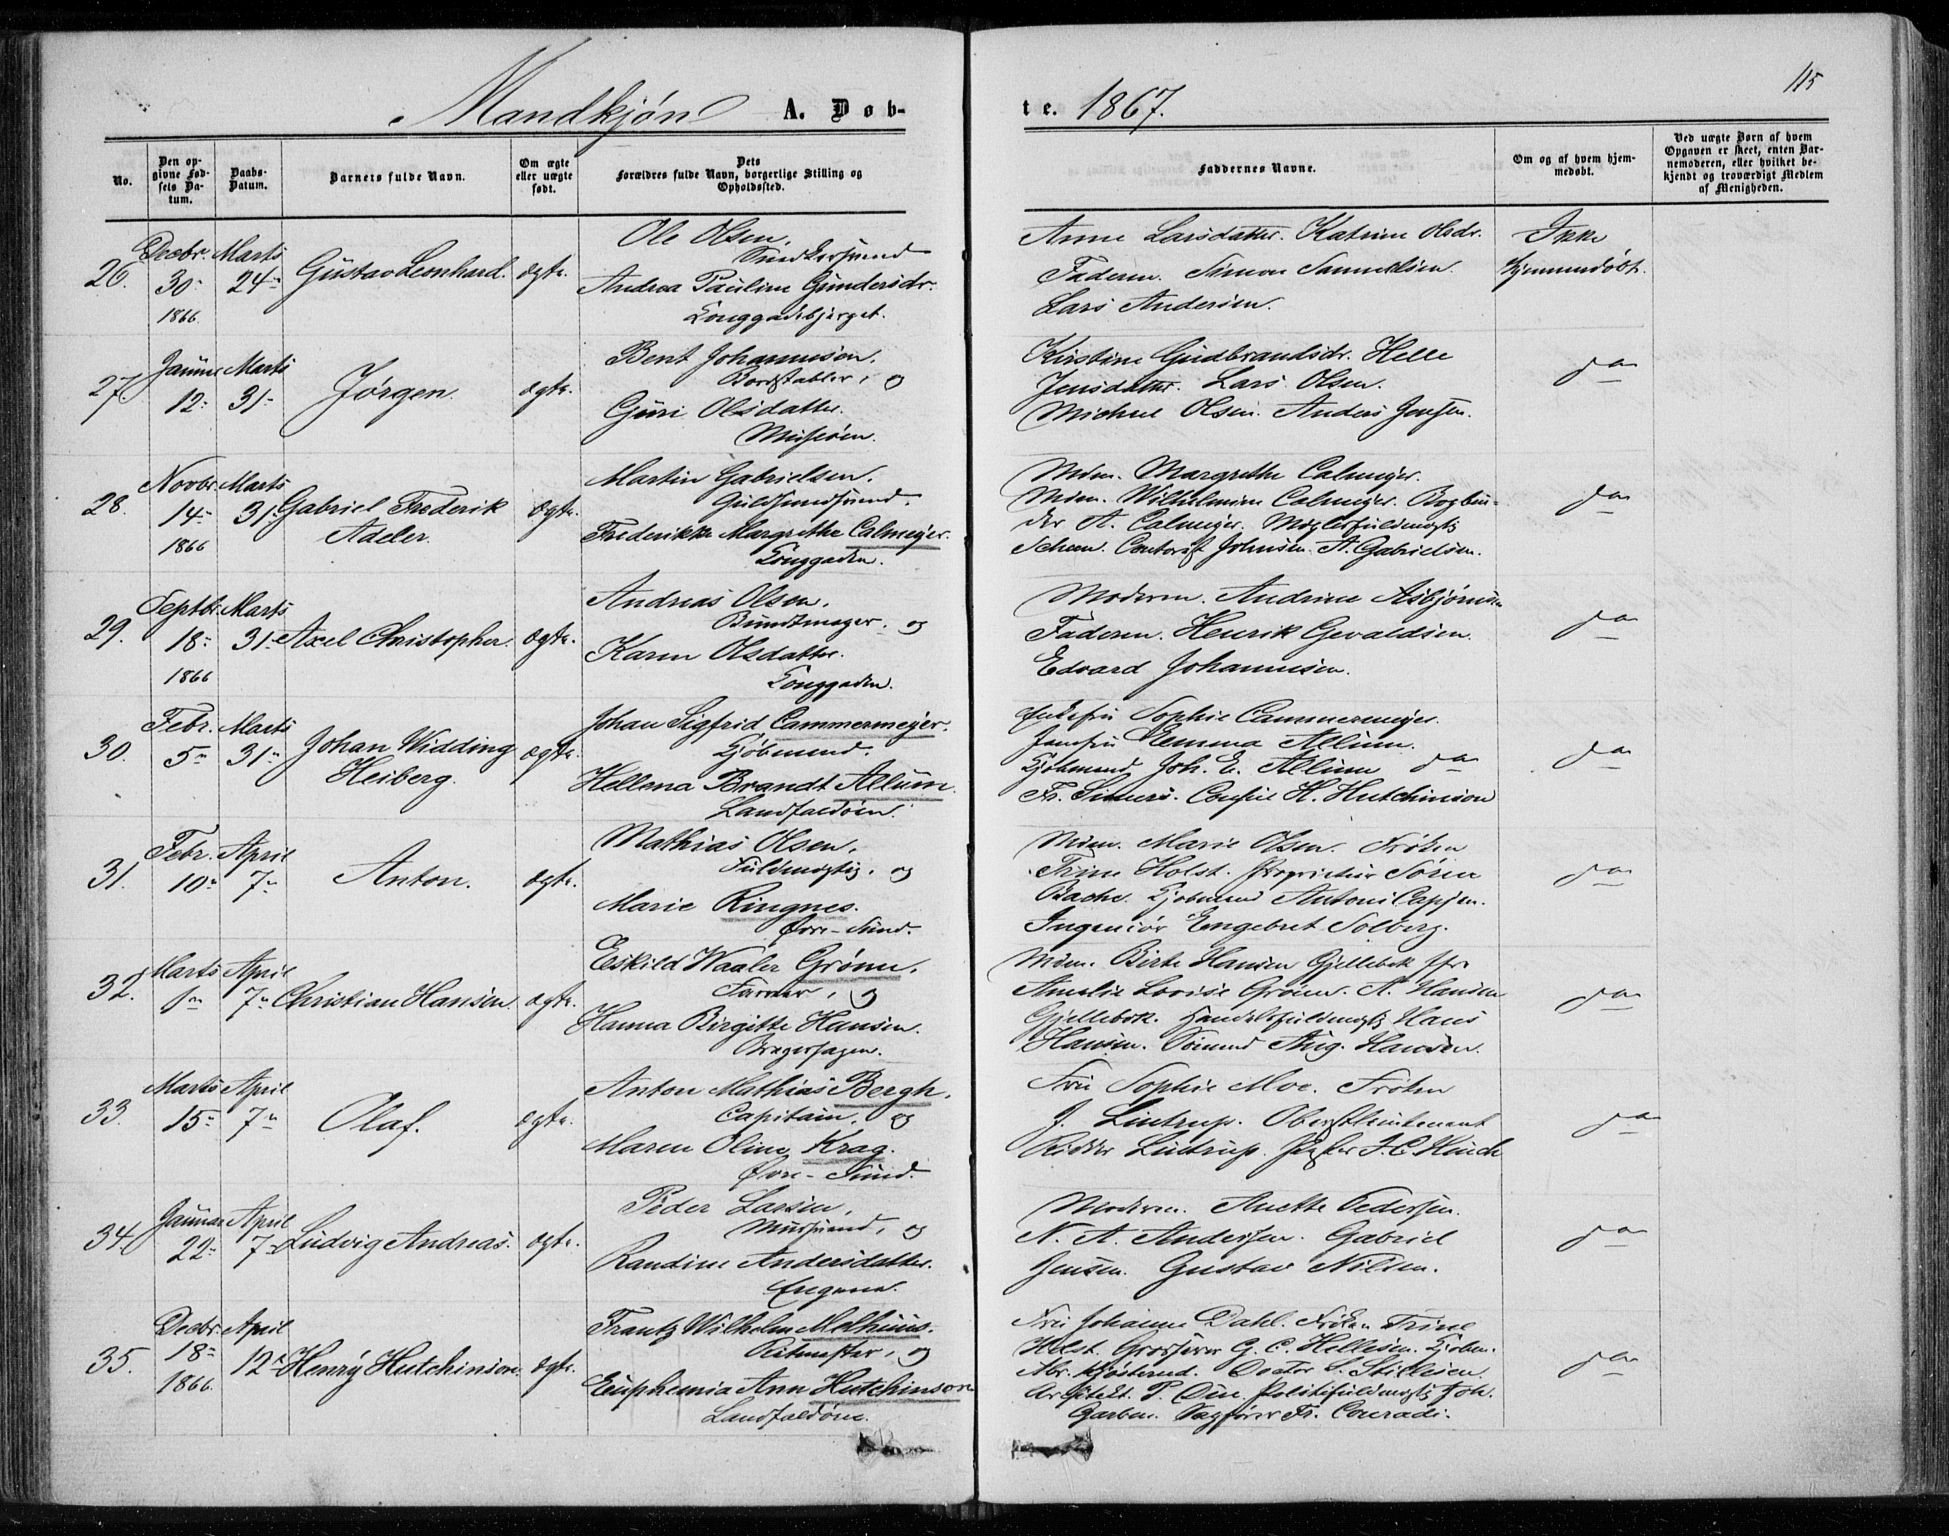 115
Mandkjøn A. Døb-
te. 1867.
No.
Den op-
givne Fød-
sels Da-
tum.
Daabs-
Datum.
Barnets fulde Navn.
Om ægte
eller uægte
født.
Dets
Forældres fulde Navn, borgerlige Stilling og
Opholdssted.
Faddernes Navne.
Om og af hvem hjem-
medøbt.
Ved uægte Børn af hvem
Opgaven er skeet, enten Bar-
nemoderen, eller hvilket be-
kjendt og troværdigt Medlem
af Menigheden.
26.
Decbr.
30
1866.
Marts
24
Gustav Leonhard.
ægte.
Ole Olsen,
Andrea Pauline Gundersdr.
Konggadebjerget.
Anne Larsdatter. Katrine Olsdr.
Faderen. Simon Samuelsen.
Lars Andersen.
Ikke
hjemmedøbt.
27.
Januar
12
Marts
31
Jørgen.
ægte.
Bent Johannesen,
Bordstabler, og
Guri Olsdatter.
Kirstine Gudbrandsdr. Helle
Jensdatter. Lars Olsen.
Michael Olsen. Anders Jensen.
do
28.
Novbr.
14
1866
Marts
31
Gabriel Frederik
Adeler.
ægte.
Martin Gabrielsen,
Guldsmedsvend.
Frederikke Margrethe Calmeijer.
Konggaden.
Mdm. Margrethe Calmeijer.
Mdm. Wilhelmine Calmeijer. Bogbin-
der A. Calmeijer. Mæglerfuldmægtig
Scheen. Contorist Johnsen. A. Gabrielsen.
do
29.
Septbr.
18
1866
Marts
31
Axel Christopher.
ægte.
Andreas Olsen,
Bundtmager, og
Karen Olsdatter.
Konggaden.
Moderen. Andrine Asbjørnsen
Faderen. Henrik Gevaldsen.
Edvard Johannesen.
do
30.
Febr.
5
Marts
31
Johan Widding
Heiberg.
ægte.
Johan Sigfrid Cammermeijer.
Kjøbmand.
Hellena Brandt Allum.
Landfaldøen.
Jomfru Sophie Cammermeijer.
Jomfru Emma Allum.
Kjøbmand Joh. E. Allum do
Fr. Simers. Consul H. Hutchinson
do
31.
Febr.
10
April
7
Anton.
ægte.
Mathias Olsen,
Fuldmægtig, og
Marie Ringnes.
Øvre-Sund.
Mdm. Marie Olsen. Frøken
Trine Holst. Proprietær Søren
Bache. Kjøbmand Antoni Cappelen.
Ingeniør Engebret Solberg.
do
32.
Marts
1
April
7
Christian Hansen.
ægte.
Eskild Waaler Grønn,
Farver, og
Hanna Birgitte Hansen.
Bragerhagen.
Mdm. Birte Hansen Gjellebek Jfr.
Amalie Lovise Grønn. A. Hansen
Gjellebek. Handelsfuldmægtig Hans
Hansen. Sømand Aug. Hansen.
do
33.
Marts
15
April
7
Olaf.
ægte.
Anton Mathias Bergh,
Capitain, og
Maren Oline Krag.
Øvre-Sund.
Fru Sophie Moe. Frøken
J. Lintrup. Oberstlieutenant
Ridder Lintrup. J. C. Hinch
do
34.
Januar
22
April
7
Ludvig Andreas.
ægte.
Peder Larsen,
Mursvend, og
Randine Andersdatter.
Engene.
Moderen. Anette Pedersen.
N. A. Andersen. Gabriel
Jensen. Gustav Nilsen.
do
35.
Decbr.
18
1866.
April
12
Henry Hutchinson.
ægte.
Frantz Wilhelm Melhuus.
Ritmester, og
Euphemia Ann Hutchinson
Landfaldøen.
Fru Johanne Dahl. Frøken Trine
Holst. Grosserer G. C. Hellesen. Kjøbm.
Abr. Kjøsterud. Doctor S. Stillesen.
Arkitekt. P. Due. Politifuldmægtig Joh.
Garben. Sagfører Fr. Conradi.
do